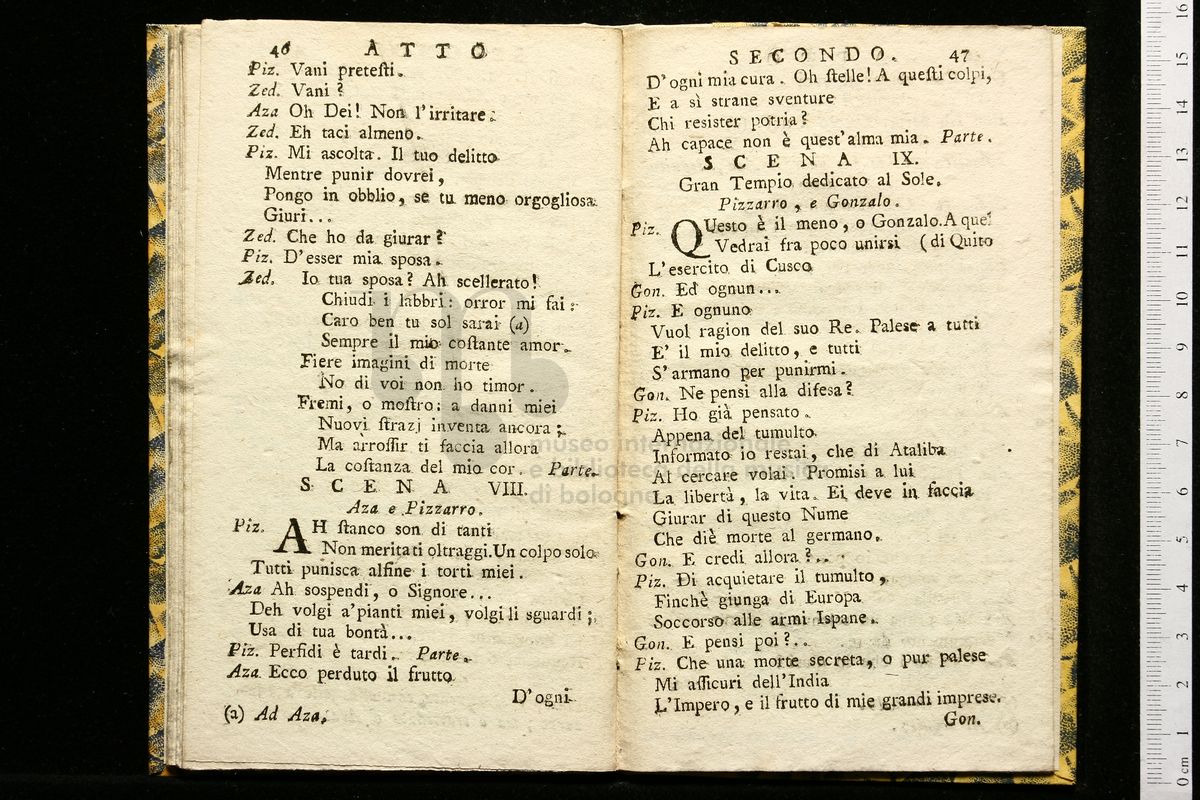 46 ATTO
Piz. Vani pretesti.
Zed. Vani?
Aza Oh Dei! Non l'irritare.
Zed. Eh taci almeno.
Piz. Mi ascolta. Il tuo delitto
Mentre punir dovrei,
Pongo in obblio, se tu meno orgogliosa
Giuri...
Zed. Che ho da giurar?
Piz. D'esser mia sposa.
Zed. Io tua sposa? Ah scellerato!
Chiudi i labbri: orror mi fai:
Caro ben tu sol sarai (a)
Sempre il mio costante amor.
Fiere imagini di morte
No di voi non ho timor.
Fremi, o mostro: a danni miei
Nuovi strazj inventa ancora;
Ma arrossir ti faccia allora
La costanza del mio cor. Parte.
SCENA VIII.
Aza e Pizzarro.
Piz. AH stanco son di tanti
Non meritati oltraggi. Un colpo solo
Tutti punisca alfine i torti miei.
Aza Ah sospendi, o Signore...
Deh volgi a'pianti miei, volgi li sguardi;
Usa di tua bontà...
Piz. Perfidi è tardi. Parte.
Aza Ecco perduto il frutto
D'ogni
(a) Ad Aza.
SECONDO. 47
D'ogni mia cura. Oh stelle! A questi colpi,
E a sì strane sventure
Chi resister potria?
Ah capace non è quest'alma mia. Parte.
SCENA IX.
Gran Tempio dedicato al Sole.
Pizzarro, e Gonzalo.
Piz. QUesto è il meno, o Gonzalo. A quel
Vedrai fra poco unirsi (di Quito
L'esercito di Cusco
Gon. Ed ognun...
Piz. E ognuno
Vuol ragion del suo Re. Palese a tutti
E' il mio delitto, e tutti
S'armano per punirmi.
Gon. Ne pensi alla difesa?
Piz. Ho già pensato.
Appena del tumulto
Informato io restai, che di Ataliba
Al cercare volai. Promisi a lui
La libertà, la vita. Ei deve in faccia
Giurar di questo Nume
Che diè morte al germano.
Gon. E credi allora?...
Piz. Di acquietare il tumulto,
Finchè giunga di Europa
Soccorso alle armi Ispane.
Gon. E pensi poi?...
Piz. Che una morte secreta, o pur palese
Mi assicuri dell'India
L'Impero, e il frutto di mie grandi imprese.
Gon.
museo internazionale
e biblioteca della musica
di bologna
0 cm 1 2 3 4 5 6 7 8 9 10 11 12 13 14 15 16